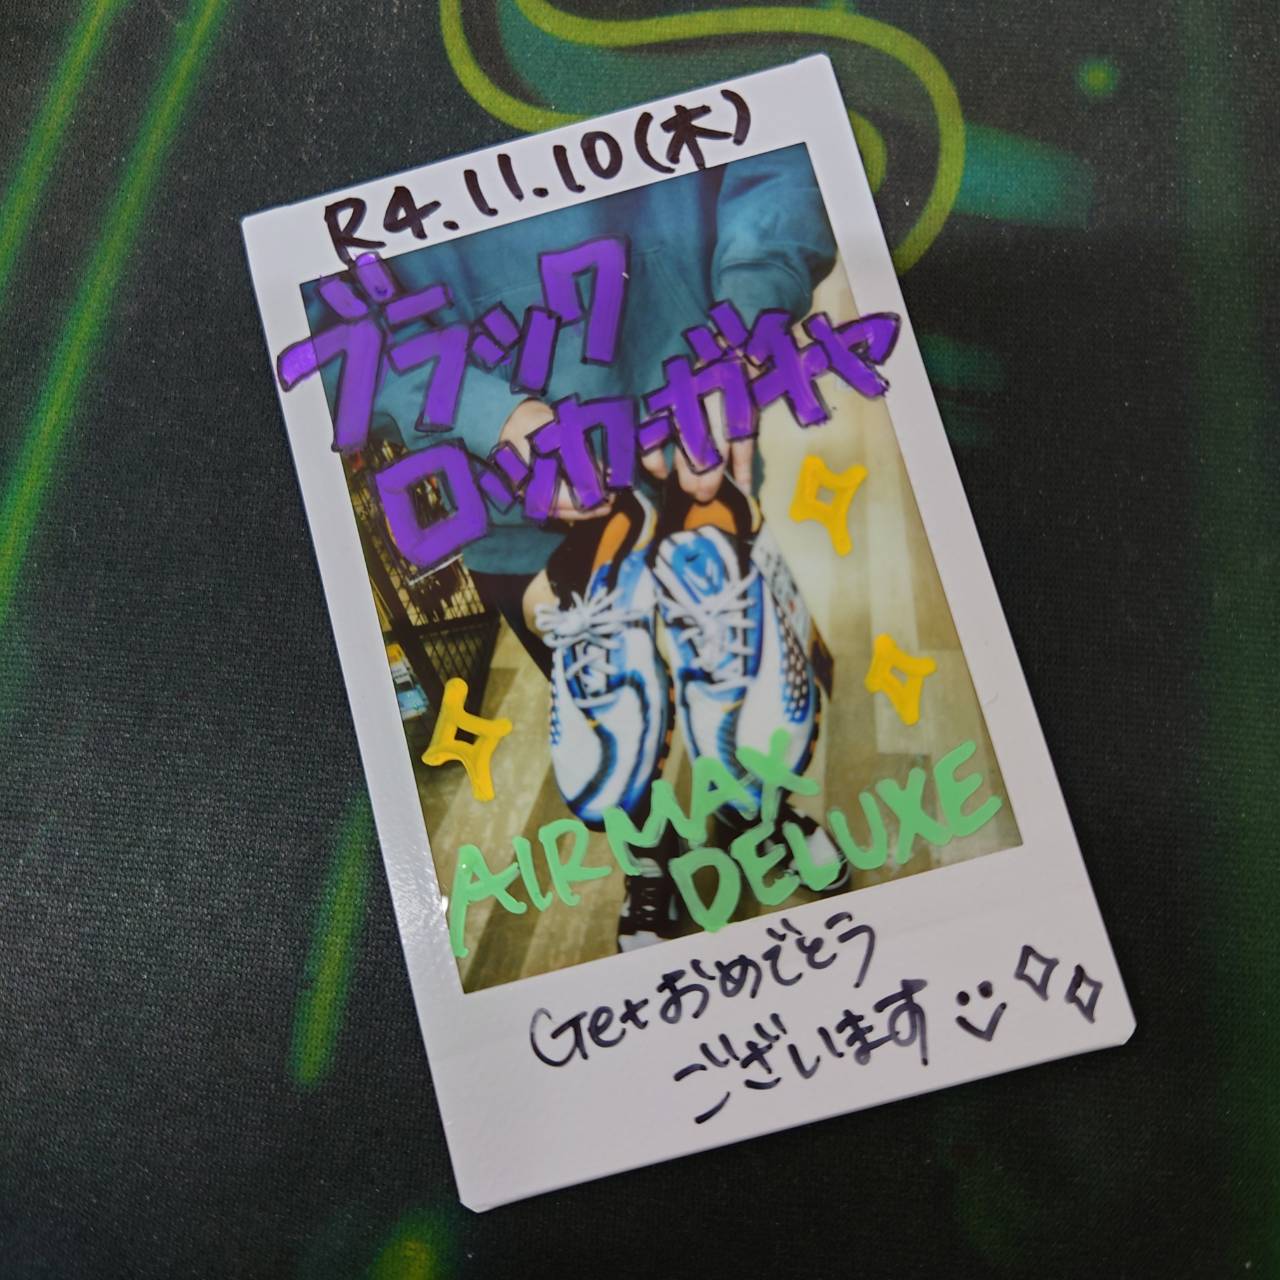 R4.11.10(木)
ブラック
ロッカーガチャ
AIRMAX
DELUXE
Getおめでとう
ございます